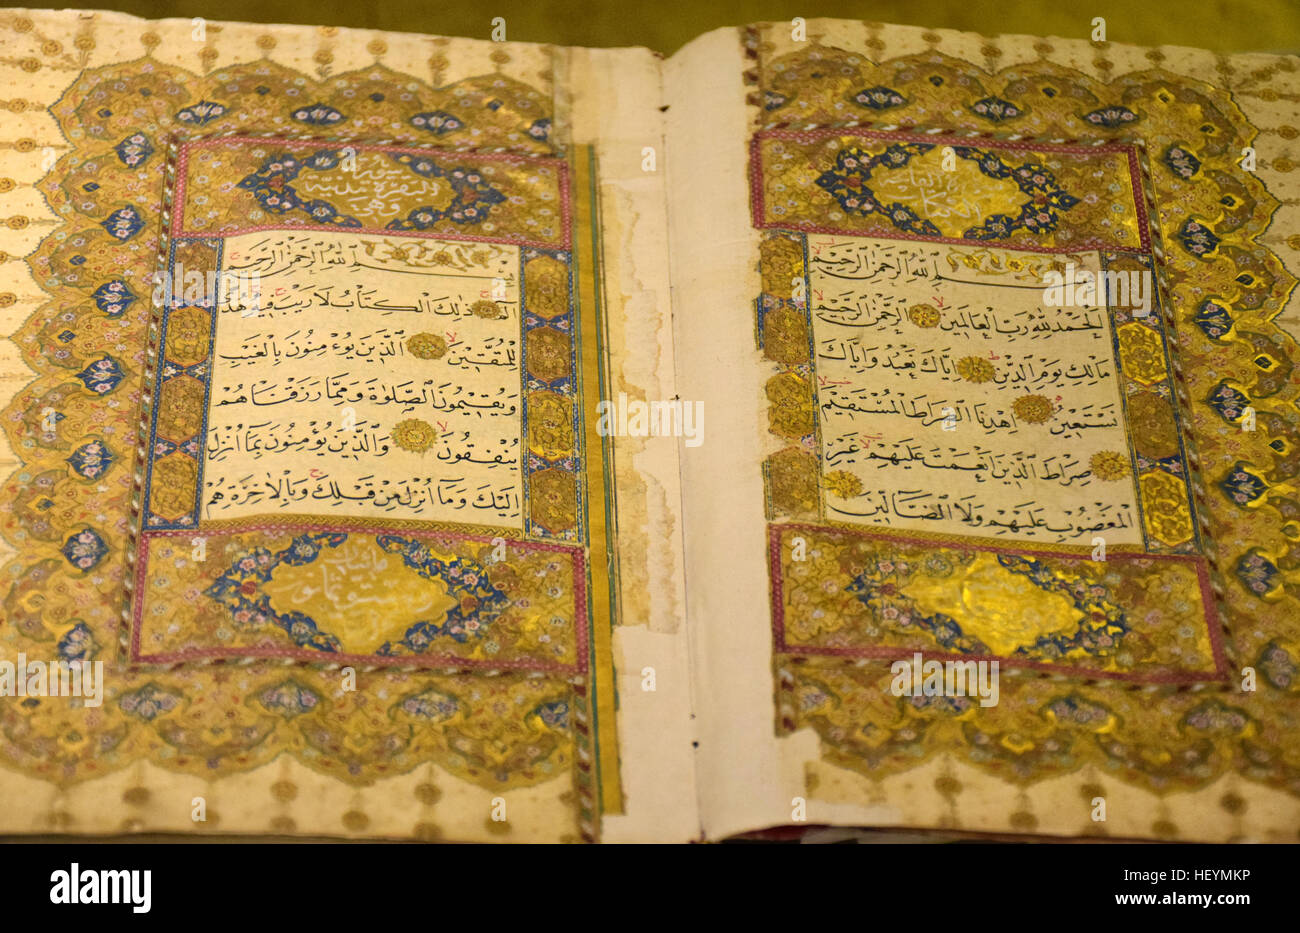 بسم الله الرحمن الرحيم
الحمد لله رب العالمين الرحمن الرحيم
مالك يوم الدين اياك نعبد واياك
نستعين اهدنا الصراط المستقيم
صراط الذين انعمت عليهم غير
المغضوب عليهم ولا الضالين
سورة
البقرة
وهي
بسم الله الرحمن الرحيم
الم ذلك الكتاب لا ريب فيه هدى
للمتقين الذين يؤمنون بالغيب
ويقيمون الصلوة ومما رزقناهم
ينفقون والذين يؤمنون بما انزل
اليك وما انزل من قبلك وبالاخرة هم
alamy stock photo
HEYMKP
www.alamy.com